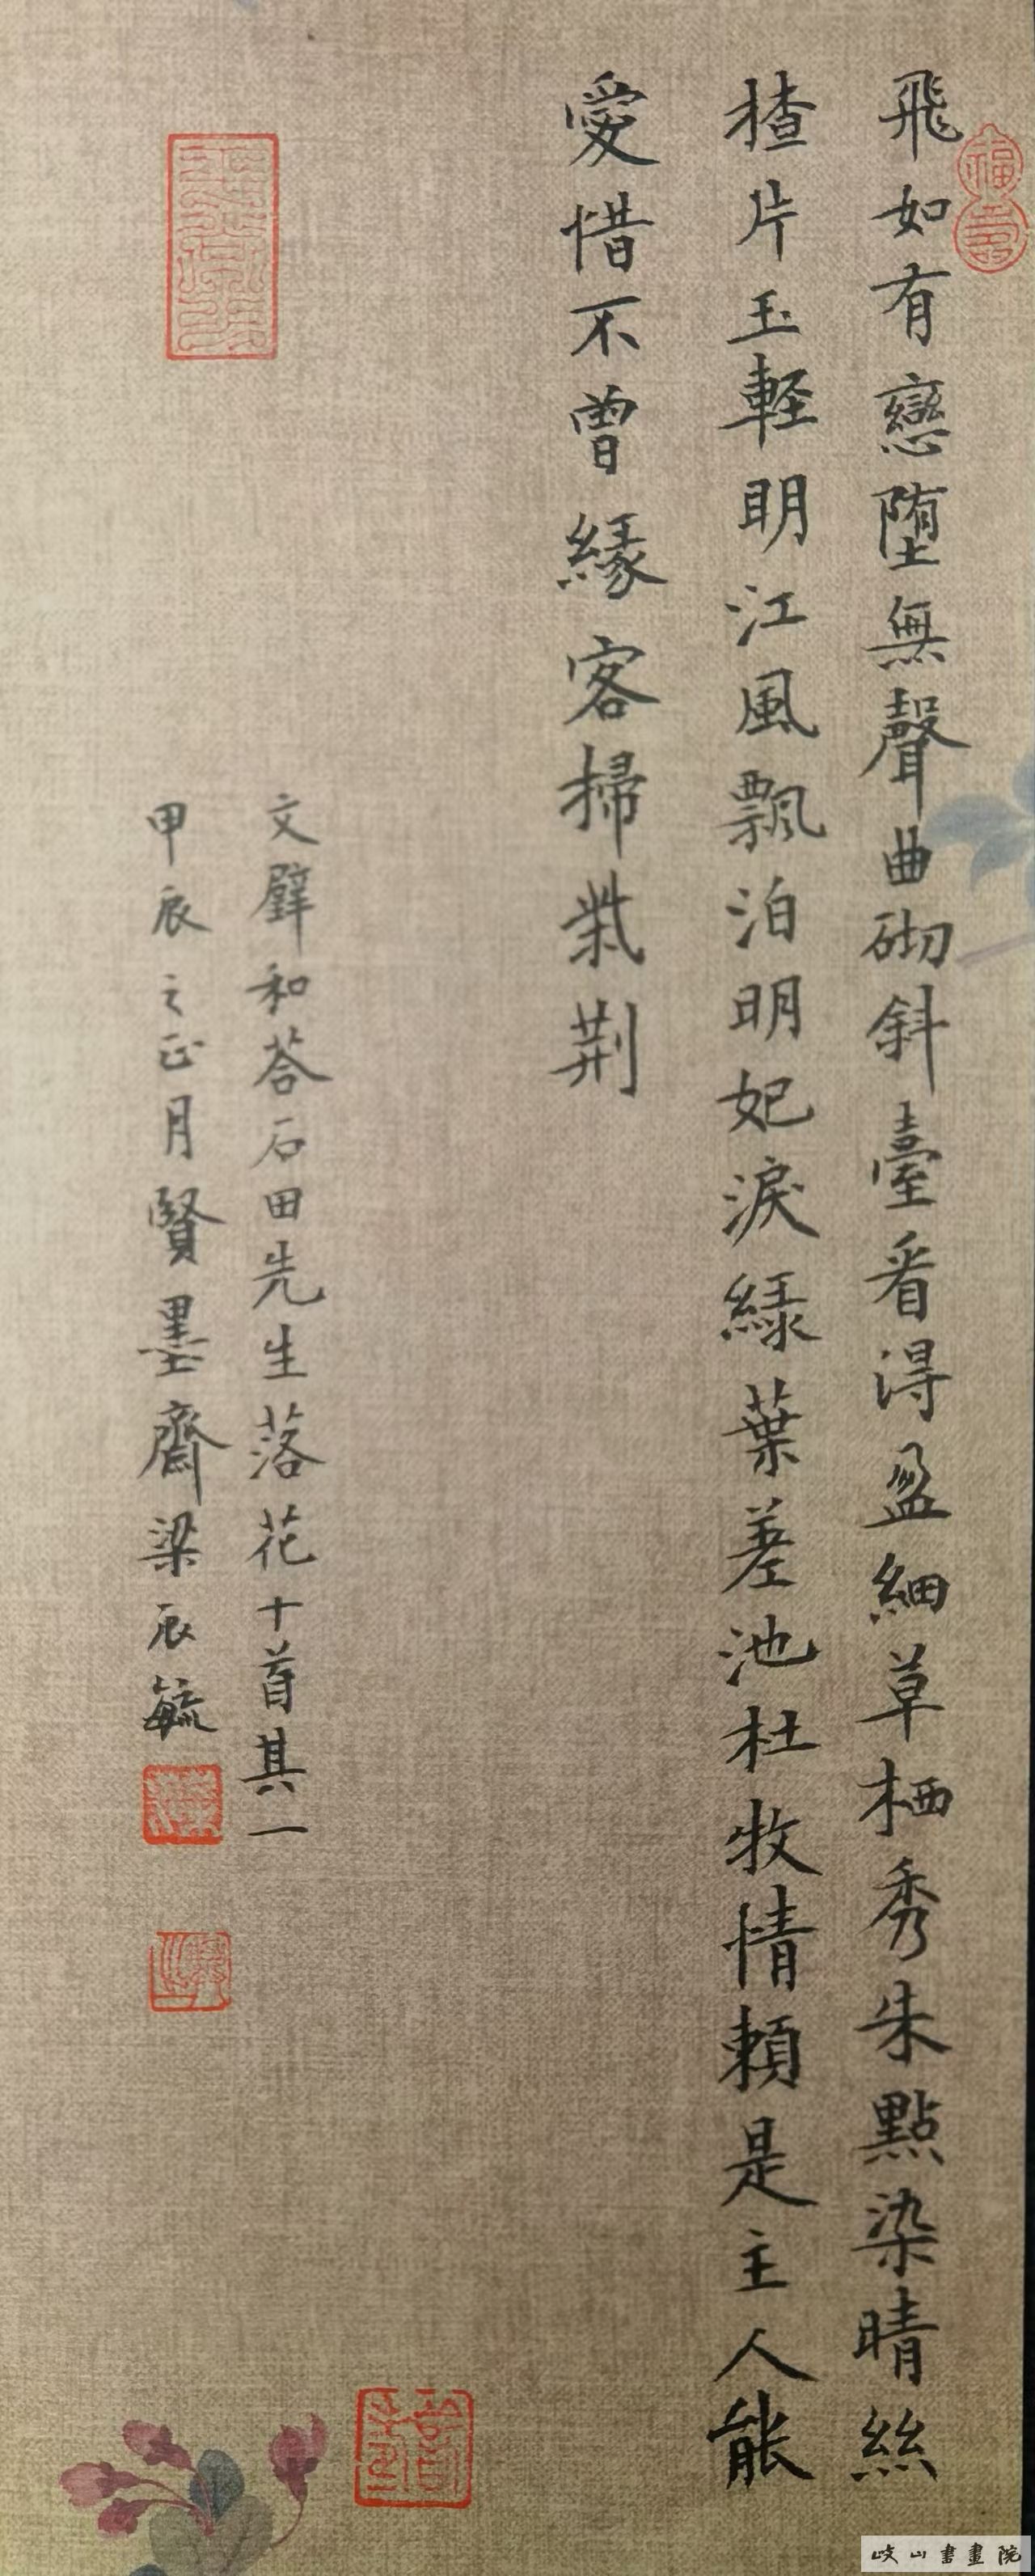 飛如有戀墮無聲曲砌斜臺看得盈細草栖秀朱點染晴絲
揸片玉輕明江風飄泊明妃淚綠葉差池杜牧情賴是主人能
愛惜不曾緣客掃柴荆
文璧和荅石田先生落花十首其一
甲辰之正月賢墨齋梁辰毓
福壽
岐山書畫院